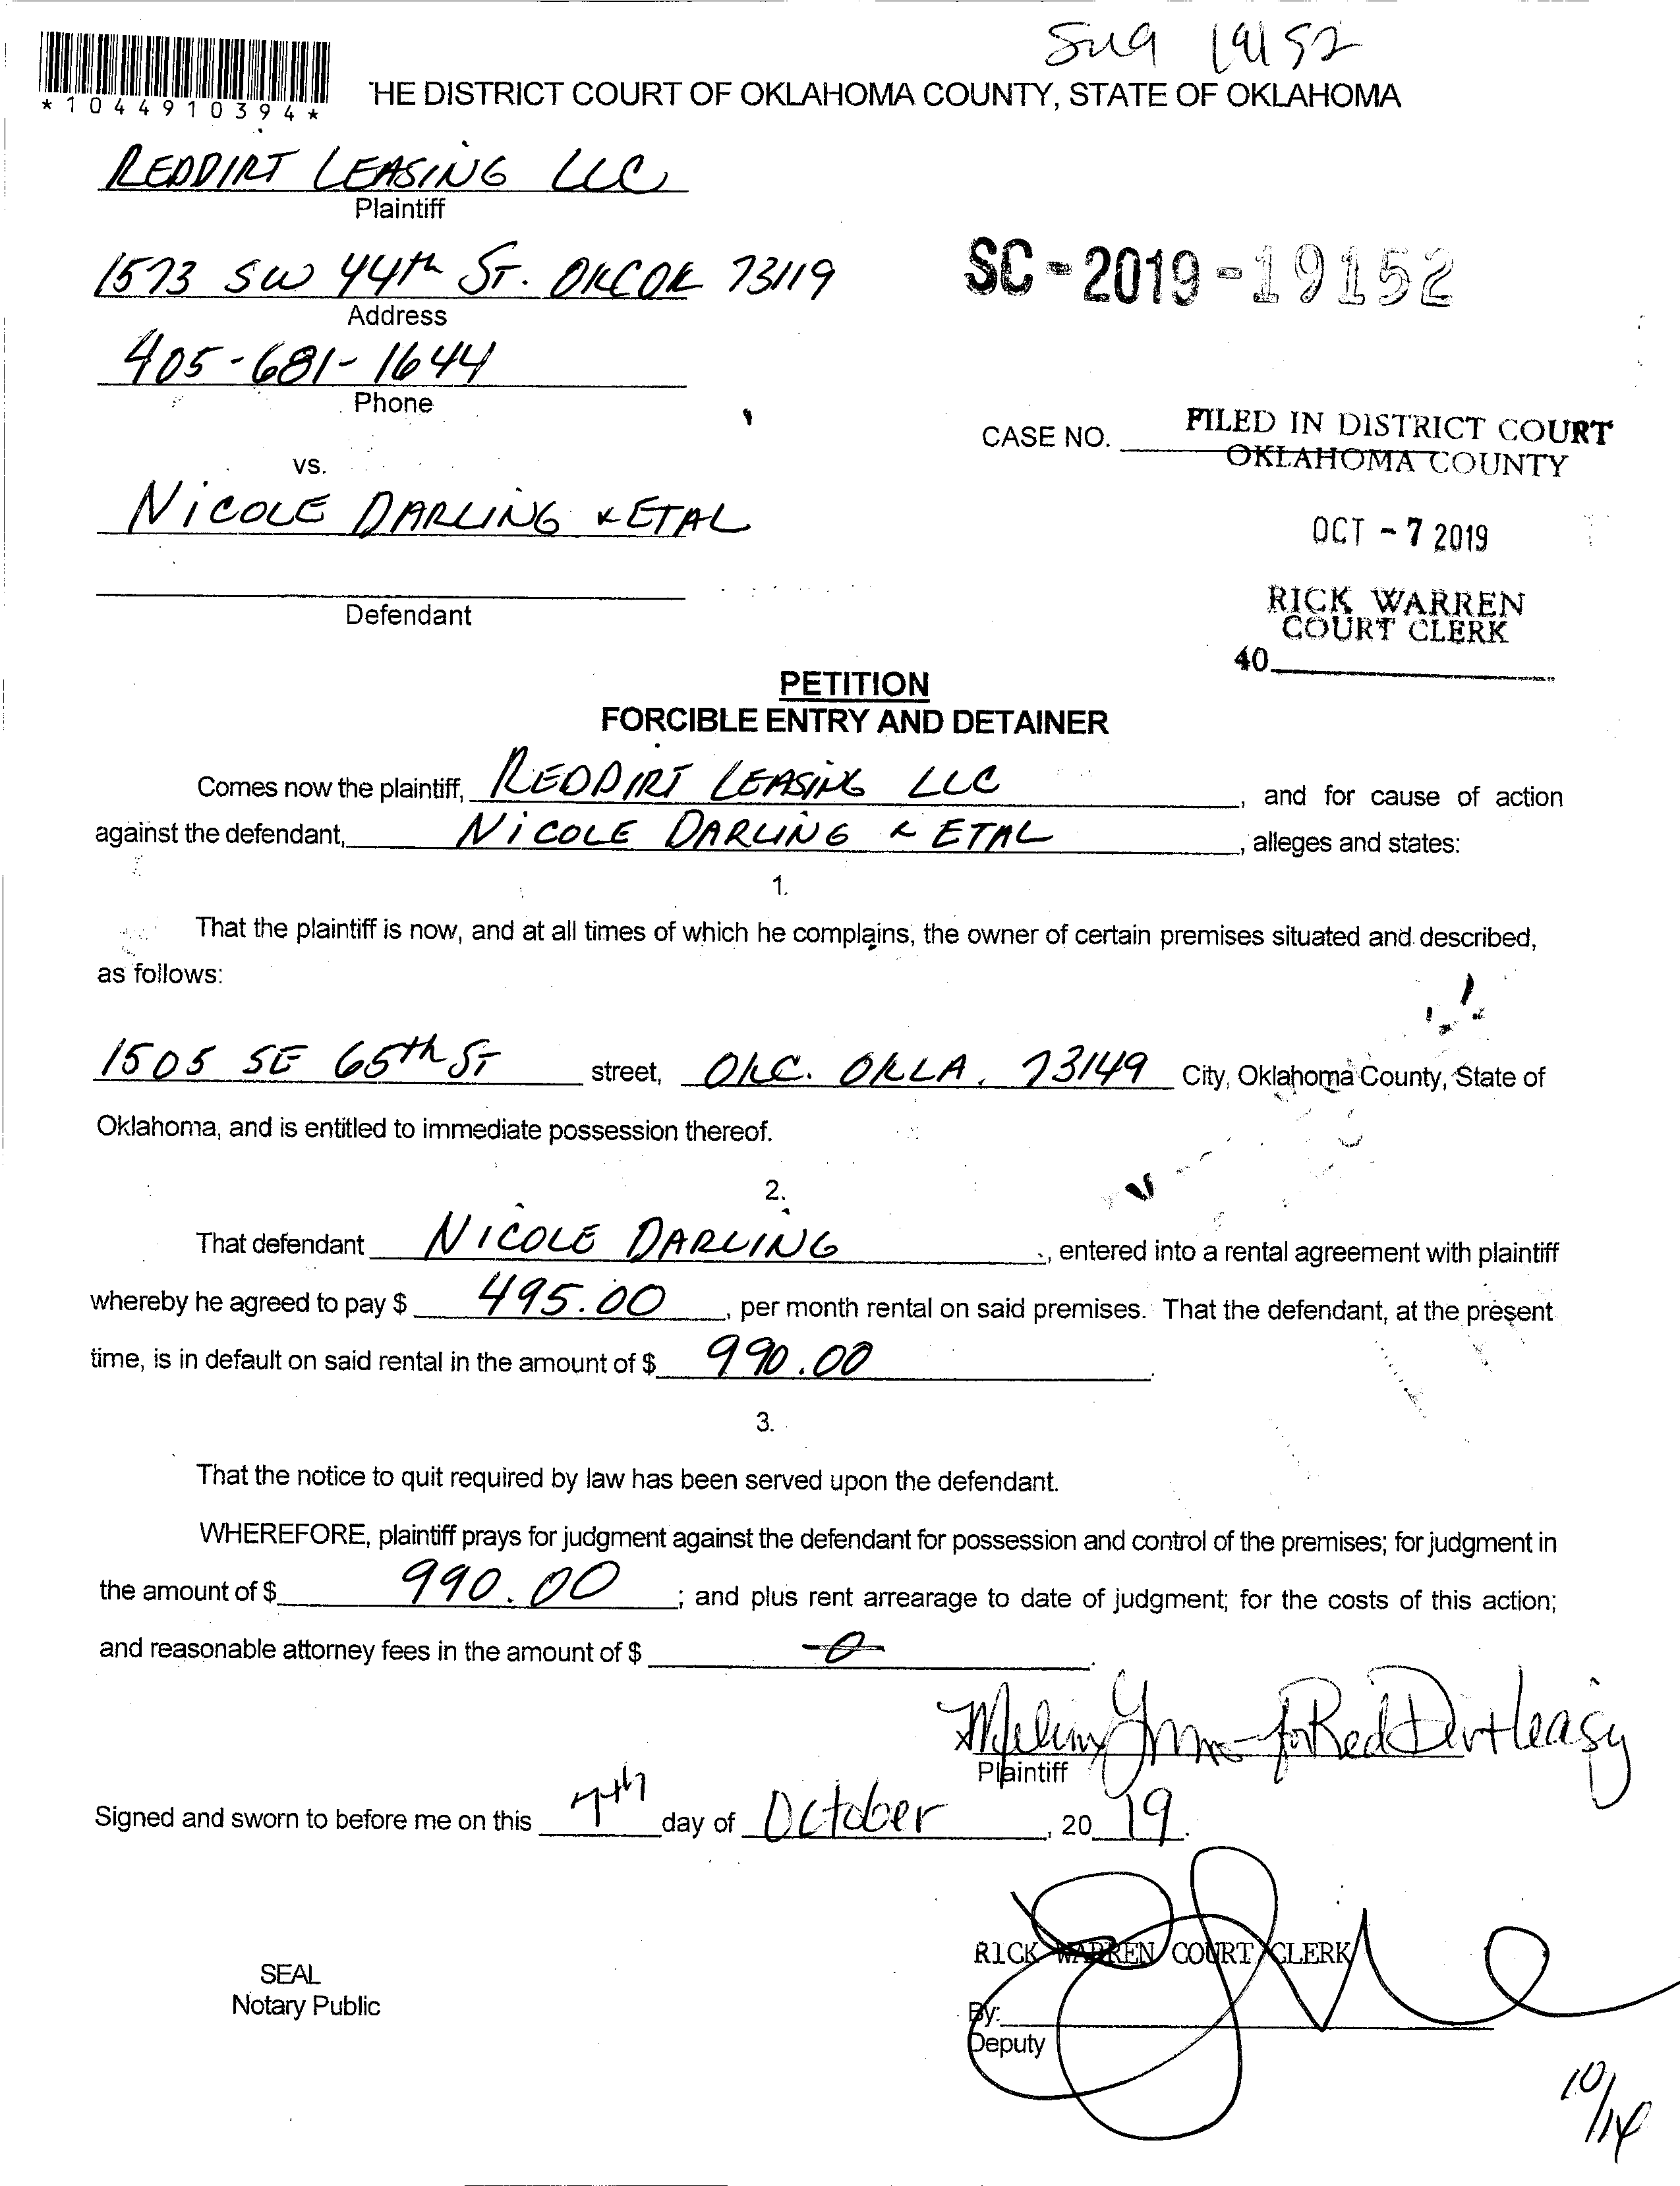 19152
*1044910394*
HE DISTRICT COURT OF OKLAHOMA COUNTY, STATE OF OKLAHOMA
REDDIRT LEASING LLC
Plaintiff
1573 SW 44th ST. OKC OK 73119
Address
SC-2019-19152
405-681-1644
Phone
CASE NO.
FILED IN DISTRICT COURT
OKLAHOMA COUNTY
vs.
NICOLE DARLING & ETAL
OCT - 7 2019
Defendant
RICK WARREN
COURT CLERK
40
PETITION
FORCIBLE ENTRY AND DETAINER
Comes now the plaintiff, REDDIRT LEASING LLC, and for cause of action
against the defendant, NICOLE DARLING & ETAL, alleges and states:
1.
That the plaintiff is now, and at all times of which he complains, the owner of certain premises situated and described,
as follows:
1505 SE 65th ST street, OKC. OKLA. 73149 City, Oklahoma County, State of
Oklahoma, and is entitled to immediate possession thereof.
2.
That defendant NICOLE DARLING, entered into a rental agreement with plaintiff
whereby he agreed to pay $ 495.00, per month rental on said premises. That the defendant, at the present
time, is in default on said rental in the amount of $ 990.00.
3.
That the notice to quit required by law has been served upon the defendant.
WHEREFORE, plaintiff prays for judgment against the defendant for possession and control of the premises; for judgment in
the amount of $ 990.00; and plus rent arrearage to date of judgment; for the costs of this action;
and reasonable attorney fees in the amount of $ 0.
for Red Dirt Leasing
Plaintiff
Signed and sworn to before me on this 7th day of October, 2019.
RICK WARREN COURT CLERK
SEAL
Notary Public
By:
Deputy
10/14